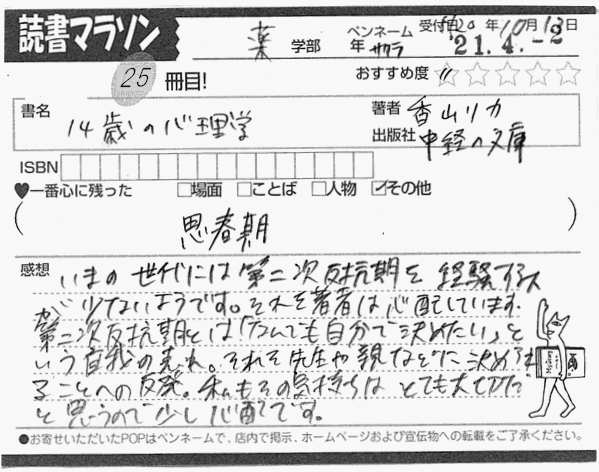 読書マラソン
薬 学部 年 ペンネーム サクラ 受付日 20年10月13日
'21.4.-2
25 冊目! おすすめ度 ☆☆☆☆☆
書名 14歳の心理学
著者 香山リカ
出版社 中経の文庫
ISBN
♥一番心に残った □場面 □ことば □人物 ☑その他
( 思春期 )
感想 いまの世代には第二次反抗期を経験する人
が少ないようです。それを著者は心配しています。
第二次反抗期とは「なんでも自分で決めたい」と
いう自我の表れ。それを先生や親などに決めら
れることへの反発。私もその気持ちはとても大切だ
と思うので少し心配です。
●お寄せいただいたPOPはペンネームで、店内で掲示、ホームページおよび宣伝物への転載をご了承ください。